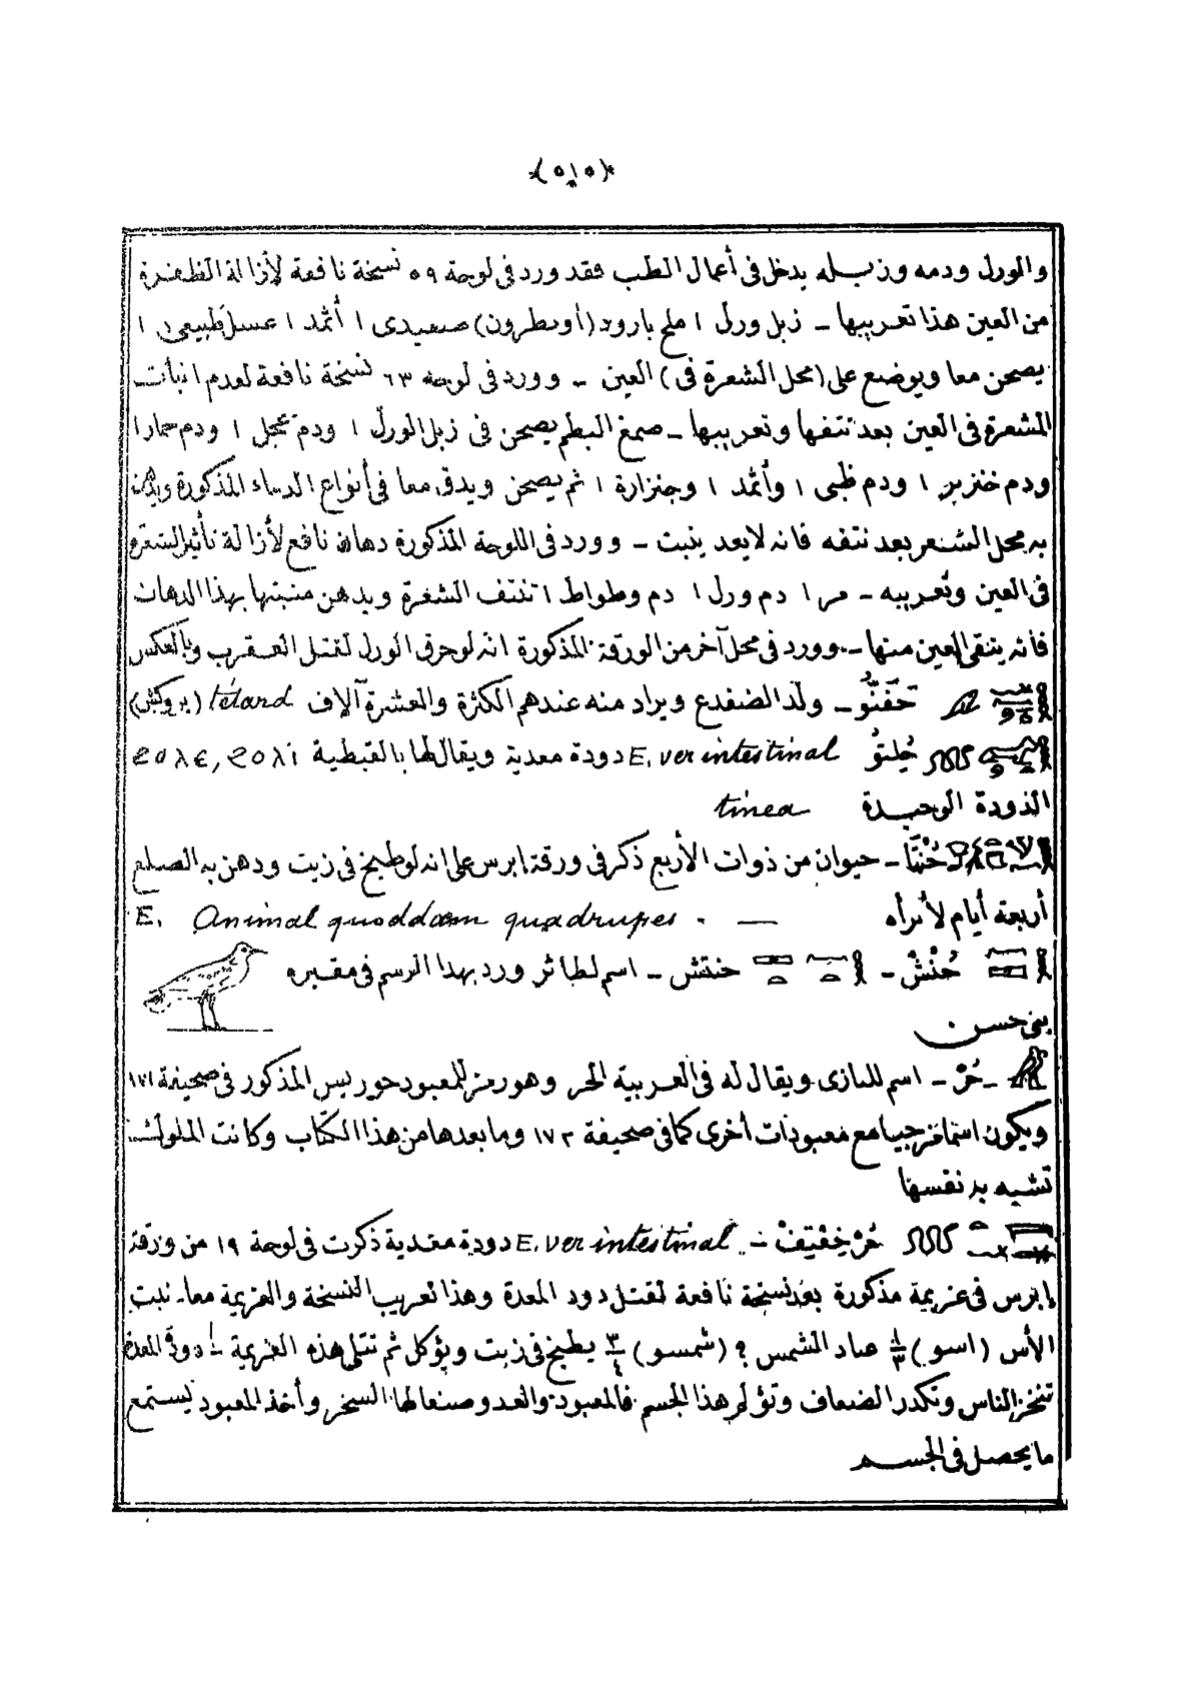 (٥١٥)
والورل ودمه وزبله يدخل فى أعمال الطب فقد ورد فى لوحة ٥٩ نسخة نافعة لأزالة الظفرة
من العين هذا تعريبها - زبل ورل ١ ملح بارود (أو نطرون) صعيدى ١ أثمد ١ عسل طبيعى ١
يصحن معا ويوضع على (محل الشعرة فى) العين - وورد فى لوحة ٦٣ نسخة نافعة لعدم انبات
الشعرة فى العين بعد نتفها وتعريبها - صمغ البطم يصحن فى زبل الورل ١ ودم عجل ١ ودم حمار ١
ودم خنزير ١ ودم ظبى ١ وأثمد ١ وجنزارة ١ ثم يصحن ويدق معا فى أنواع الدماء المذكورة ويدهن
به محل الشعر بعد نتفه فانه لا يعد ينبت - وورد فى اللوحة المذكورة دهان نافع لأزالة تأثير الشعرة
فى العين وتعريبه - مر ١ دم ورل ١ دم وطواط ١ تنتف الشعرة ويدهن منبتها بهذا الدهان
فأنه ينقى العين منها - وورد فى محل آخر من الورقة المذكورة انه لو حرق الورل لقتل العقرب وبالعكس
حَفَنُّو - ولد الضفدع ويراد منه عندهم الكثرة والعشرة آلاف têtard (بروكش)
حُلتوُ E. ver intestinal دودة معدية ويقال لها بالقبطية ϩⲟⲗⲓ , ϩⲟⲗⲉ
الدودة الوحيدة tinea
حُنْتَا - حيوان من ذوات الأربع ذكر فى ورقة ابرس على انه لو طبخ فى زيت ودهن به الصلع
أربعة أيام لأبرأه — . E. Animal quoddam quadrupes
حُنْشْ - حنتش - اسم لطائر ورد بهذا الرسم فى مقبرة
بنى حسن
- حُرْ - اسم للبازى ويقال له فى العربية الحر وهو رمز للمعبود حوريس المذكور فى صحيفة ١٧١
ويكون اسما مزجيا مع معبودات أخرى كما فى صحيفة ١٧٢ وما بعدها من هذا الكتاب وكانت الملوك
تشبه به نفسها
حُرْحِفْتِيفْ - E. ver intestinal دودة معدية ذكرت فى لوحة ١٩ من ورقة
ابرس فى عزيمة مذكورة بعد نسخة نافعة لقتل دود المعدة وهذا تعريب النسخة والعزيمة معا - نبت
الأس (اسو) صاد الشمس ؟ (شمسو) ٣/٤ يطبخ فى زيت ويؤكل ثم تتلى هذه العزيمة - دودة المعدة
تنخز الناس وتكدر الضعاف وتؤلم هذا الجسم فالمعبود والعدو صنعا لها السحر وأخذ المعبود يستمع
ما يحصل فى الجسم